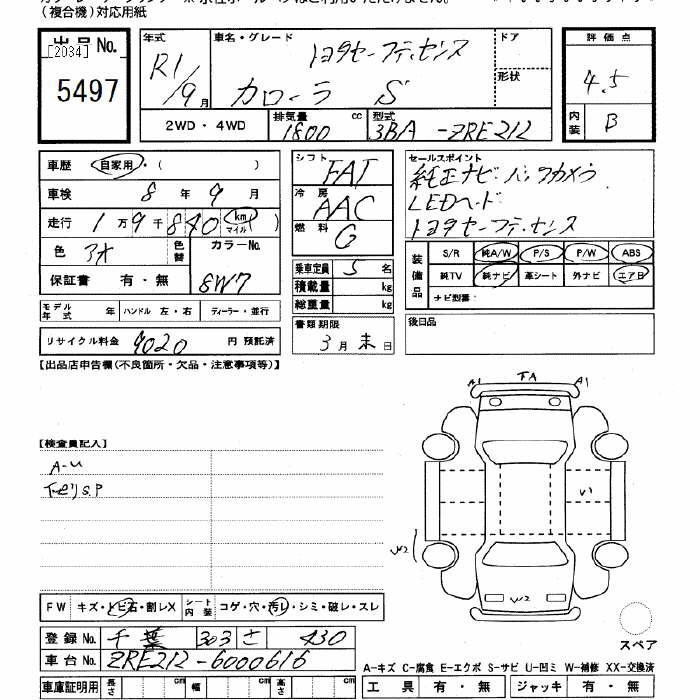 (複合機)対応用紙
出品No.
[2034]
5497
年式
R1/9月
車名・グレード
トヨタセーフティセンス
カローラ S
ドア
形状
評価点
4.5
内装
B
2WD・4WD
排気量 1800 cc
型式 3BA-ZRE212
車歴 自家用・( )
車検 8年 9月
走行 1万9千840 (km マイル)
色
色替
カラーNo.
8W7
保証書 有・無
モデル年式 年
ハンドル 左・右
ディーラー・並行
リサイクル料金 9020 円 預託済
シフト FAT
冷房 AAC
燃料 G
乗車定員 5 名
積載量 kg
総重量 kg
書類期限
3月末日
セールスポイント
純正ナビ バックカメラ
LEDヘッド
トヨタセーフティセンス
装備品
S/R 純A/W P/S P/W ABS
純TV 純ナビ 革シート 外ナビ エアB
ナビ型番:
後日品
【出品店申告欄(不良箇所・欠品・注意事項等)】
【検査員記入】
A-U
下モリS.P
A1 FA A1
U1
W2
W2
スペア
FW キズ・トビ石・割レX
シート内装 コゲ・穴・汚レ・シミ・破レ・スレ
登録No. 千葉 303 さ 430
車台No. ZRE212-6000616
車庫証明用 長さ cm 幅 cm 高さ cm
A-キズ C-腐食 E-エクボ S-サビ U-凹ミ W-補修 XX-交換済
工具 有・無 ジャッキ 有・無